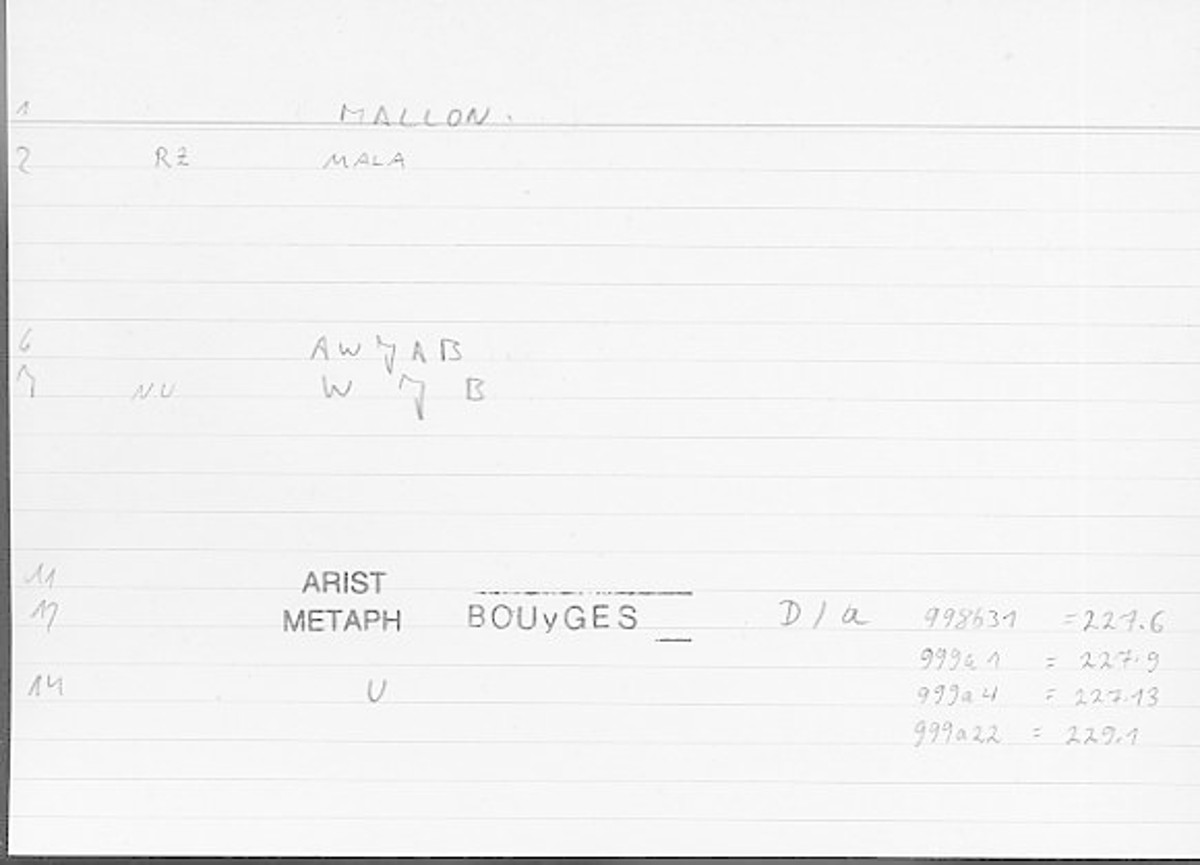 1 MALLON.
2 RZ MALA
6 AW J A B
7 NU W J B
11 ARIST
17 METAPH BOUyGES D/a 998b31 =227.6
999a1 = 227.9
999a4 = 227.13
14 U
999a22 = 229.1